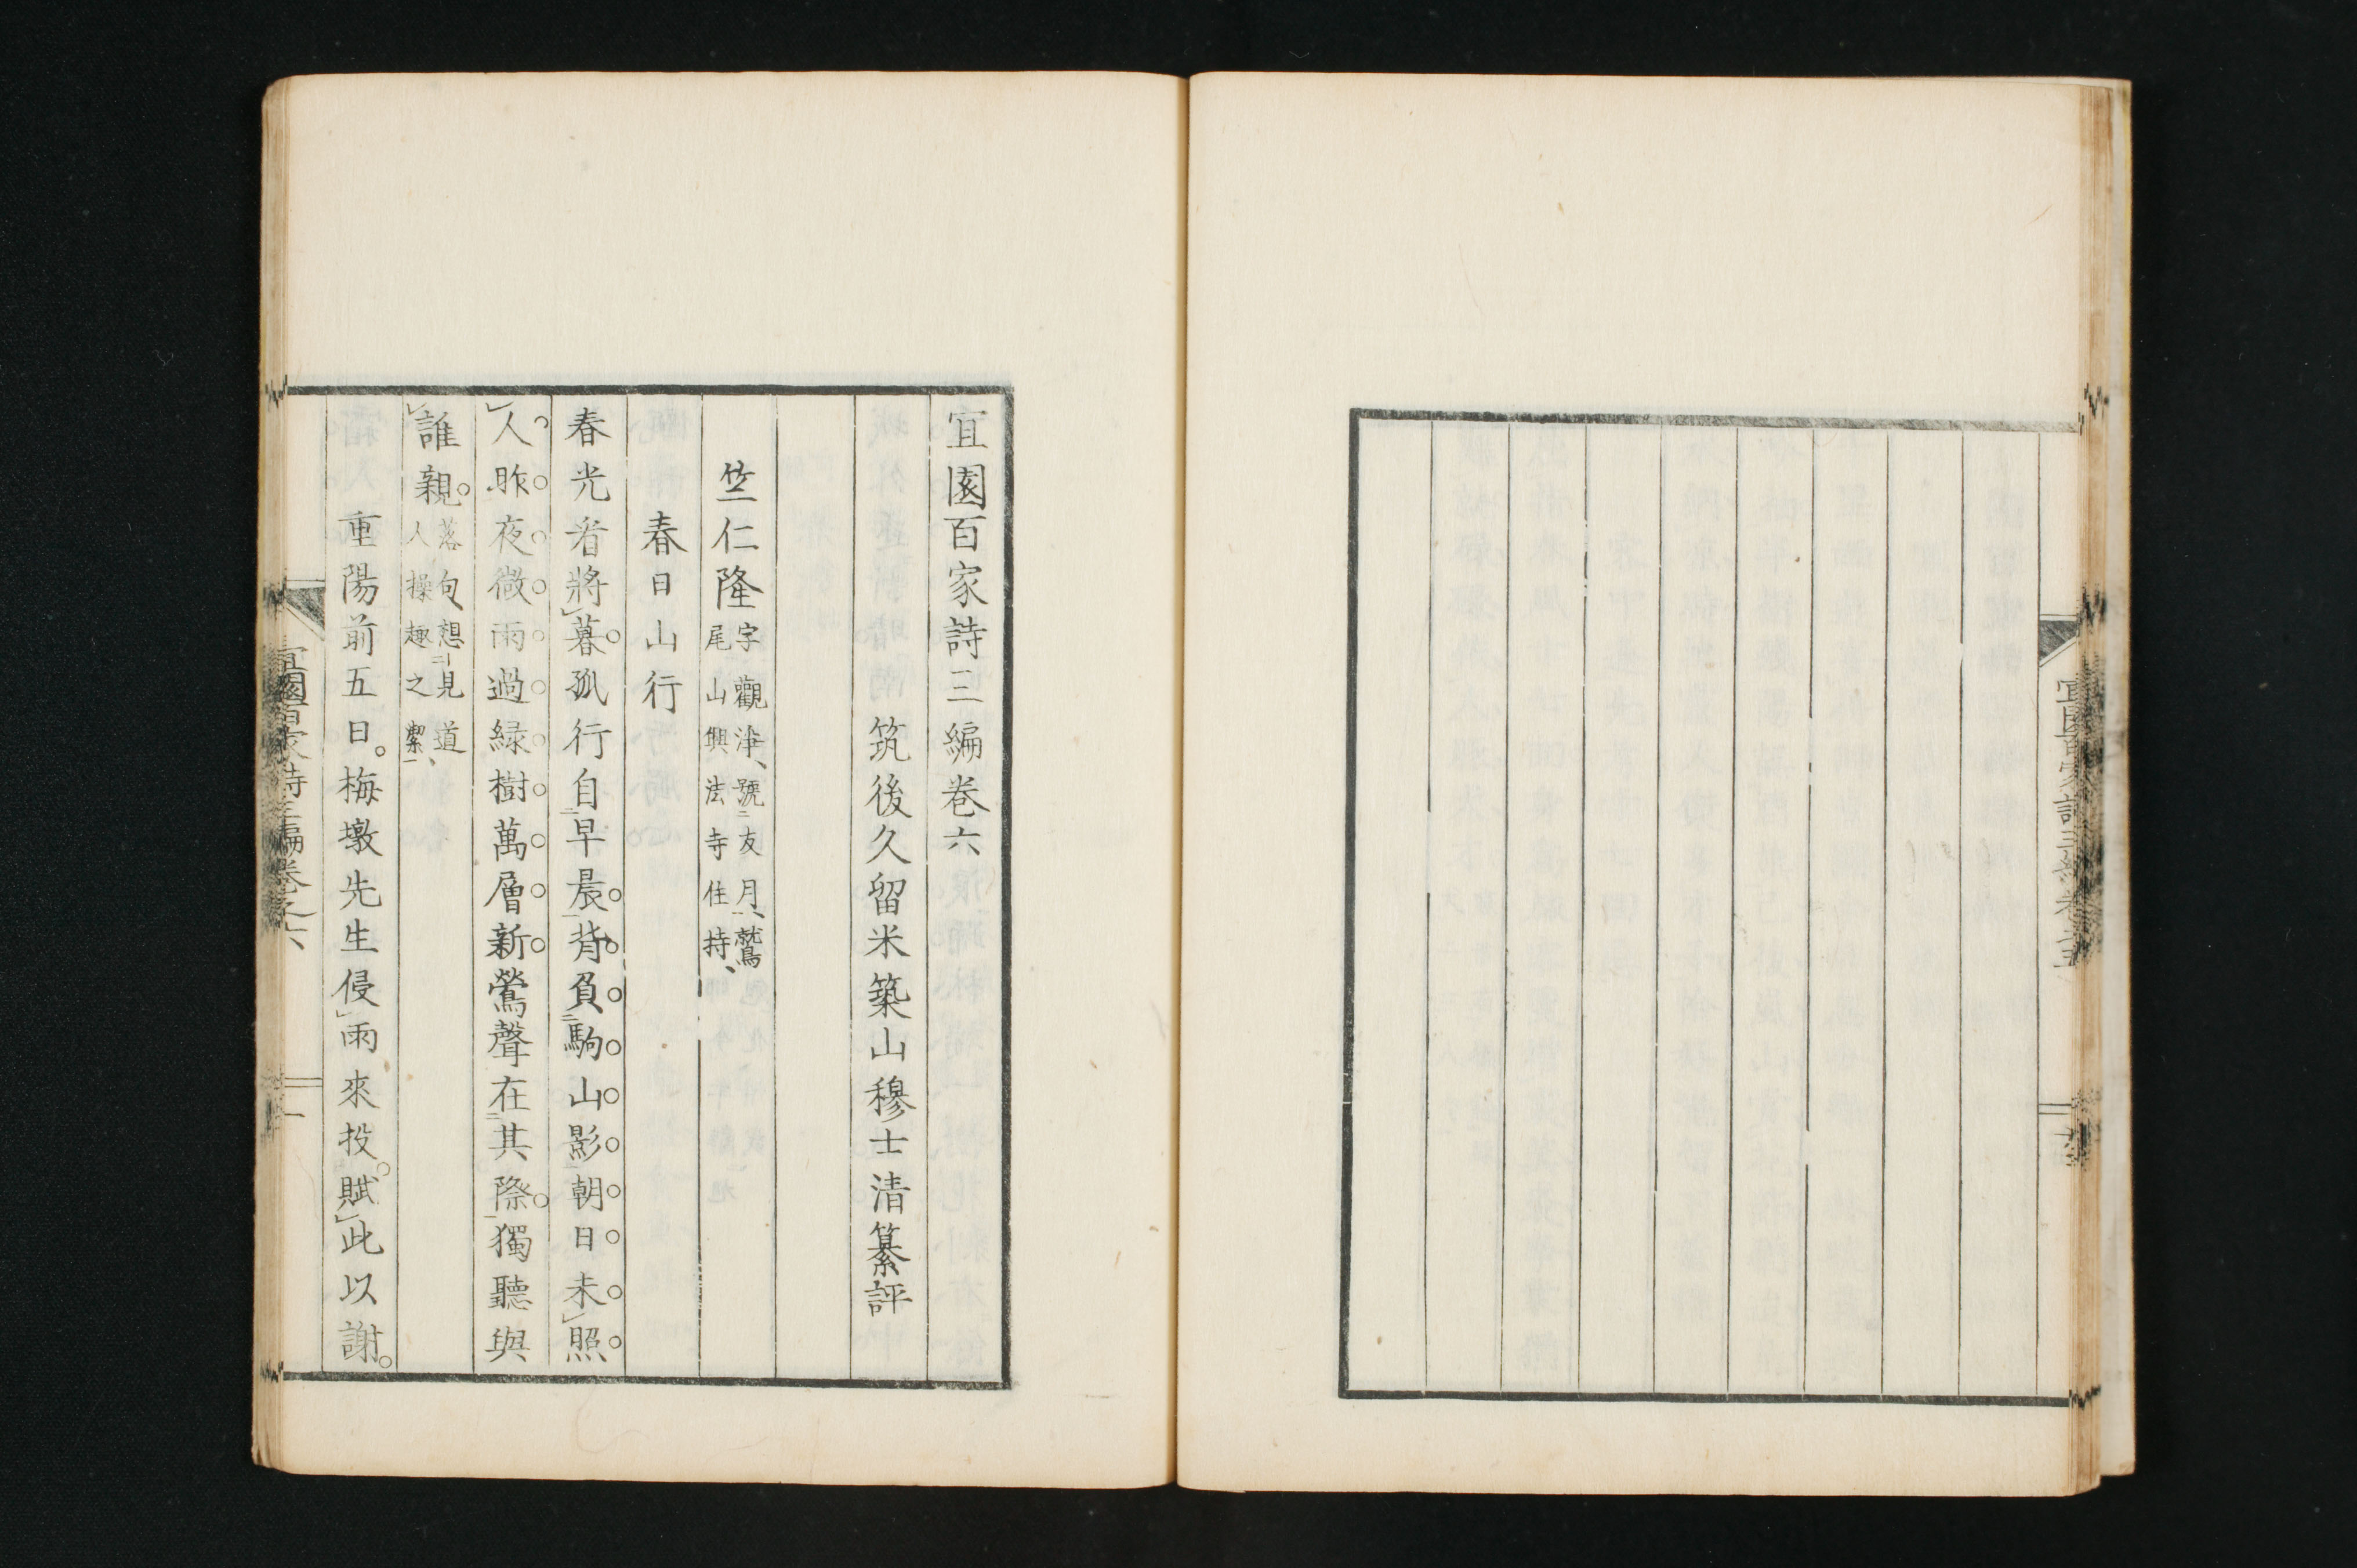 宜園百家詩三編卷六
筑後久留米築山穆士清纂評
竺仁隆字觀淨、號友月、鷲尾山興法寺住持、
春日山行
春光看將暮孤行自早晨背負駒山影朝日未照
人昨夜微雨過緑樹萬層新鶯聲在其際獨聽與
誰親落句想見道人操趣之潔、
重陽前五日。梅墩先生侵雨來投。賦此以謝。
宜園百家詩三編卷之六
一